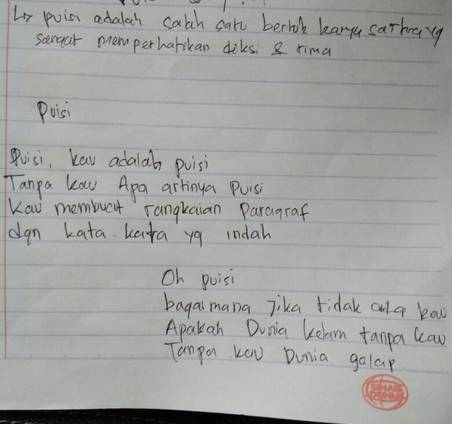 ↳ puisi adalah salah satu bentuk karya sastra yg
sangat memperhatikan diksi & rima
Puisi
Puisi, kau adalah puisi
Tanpa kau Apa artinya Puisi
Kau membuat rangkaian Paragraf
dgn kata-kata yg indah
Oh puisi
bagaimana Jika tidak ada kau
Apakah Dunia kelam tanpa kau
Tanpa kau Dunia gelap